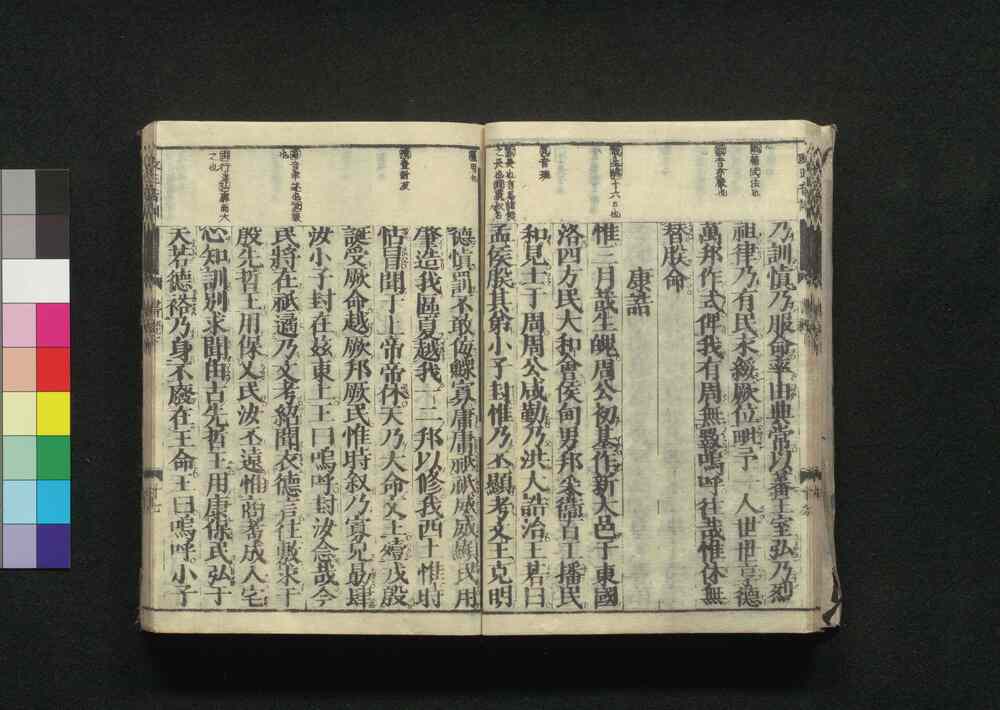 乃訓慎乃服命率由典常以蕃王室弘乃烈
祖律乃有民永綏厥位毗予一人世世享德
萬邦作式俾我有周無斁嗚呼往哉惟休無
替朕命
康誥
惟三月哉生魄周公初基作新大邑于東國
洛四方民大和會侯甸男邦采衛百工播民
和見士于周周公咸勤乃洪大誥治王若曰
孟侯朕其弟小子封惟乃丕顯考文王克明
德慎罰不敢侮鰥寡庸庸祗祗威威顯民用
肇造我區夏越我一二邦以修我西土惟時
怙冒聞于上帝帝休天乃大命文王殪戎殷
誕受厥命越厥邦厥民惟時叙乃寡兄勗肆
汝小子封在茲東土王曰嗚呼封汝念哉今
民將在祗遹乃文考紹聞衣德言往敷求于
殷先哲王用保乂民汝丕遠惟商耇成人宅
心知訓別求聞由古先哲王用康保民弘于
天若德裕乃身不廢在王命王曰嗚呼小子